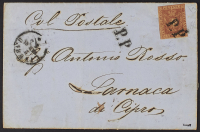 Col Postale
P.P.
P.P.
Antonio Rosso.
Larnaca
di Cipro